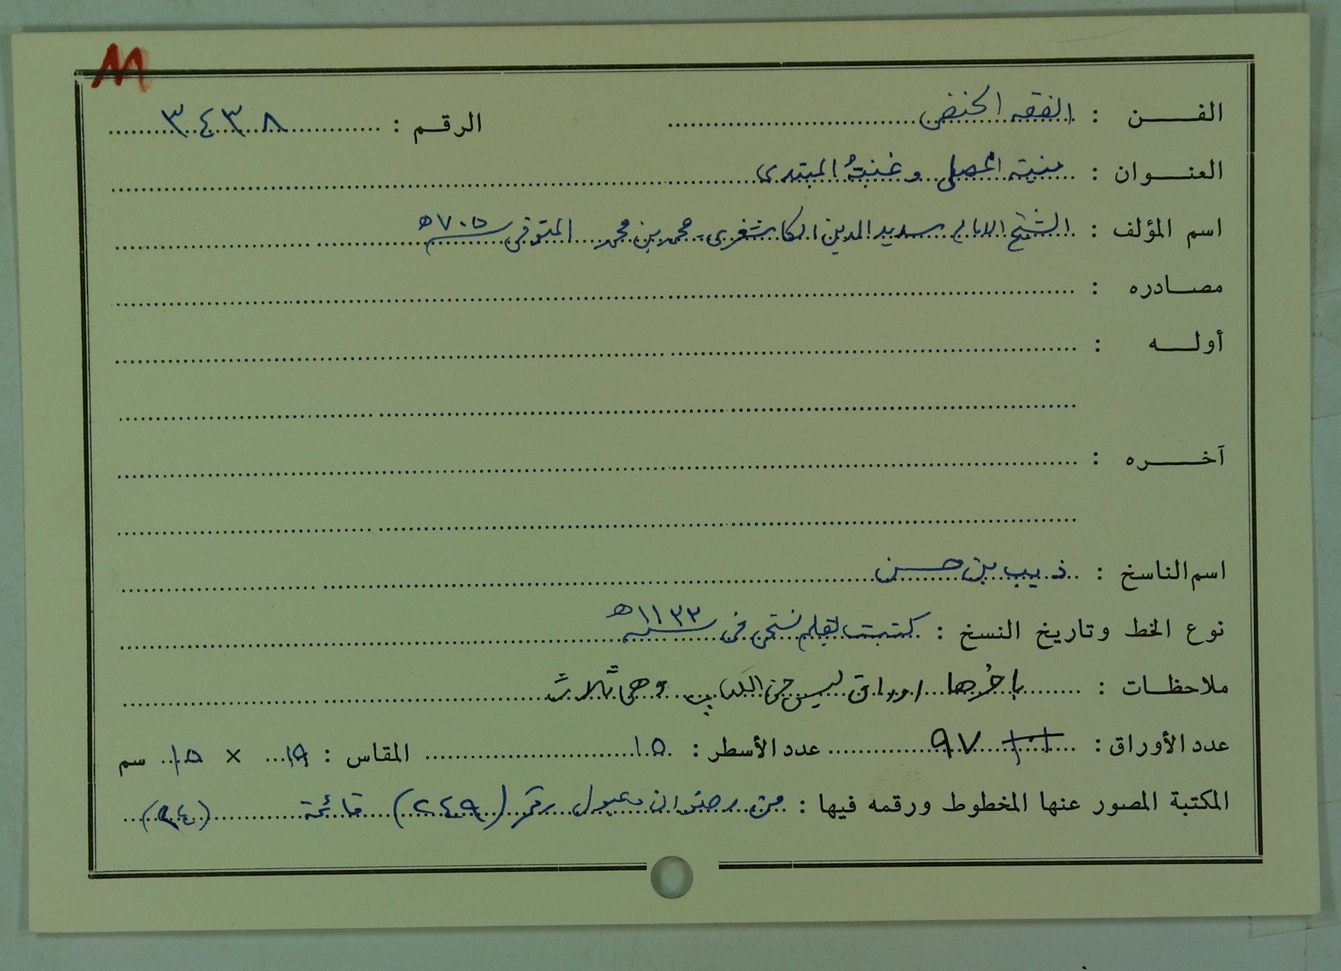 M
الفن : الفقه الحنفي الرقم : ٣٤٣٨
العنوان : منية المصلي وغنية المبتدى
اسم المؤلف : الشيخ الامام سديد الدين الكاشغري محمد بن محمد المتوفى سنة ٧٠٥ هـ
مصادره :
أوله :
آخره :
اسم الناسخ : ذيب بن حسن
نوع الخط وتاريخ النسخ : كتبت بقلم نسخي في سنة ١١٣٣ هـ
ملاحظات : باخرها اوراق ليس من الكتاب وهي ثلاث
عدد الأوراق : ٩٧ عدد الأسطر : ١٥ المقاس : ١٩ × ١٥ سم
المكتبة المصور عنها المخطوط ورقمه فيها : من رضوان دعبول برقم (٢٤٩) قائمة (٩٤)